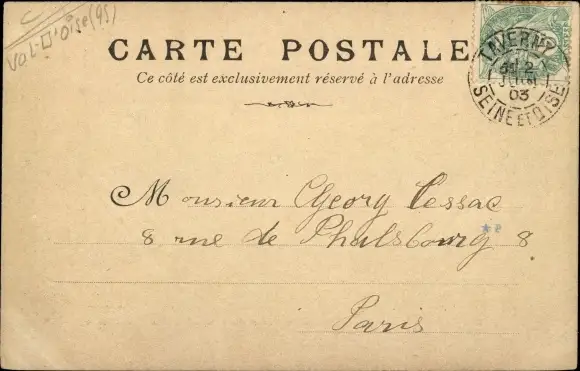 Val-D'Oise (95)
CARTE POSTALE
Ce côté est exclusivement réservé à l'adresse
TAVERNY
2
JUIN
03
SEINE ET OISE
Monsieur Georg Cessac
8 rue de Phalsbourg 8
Paris